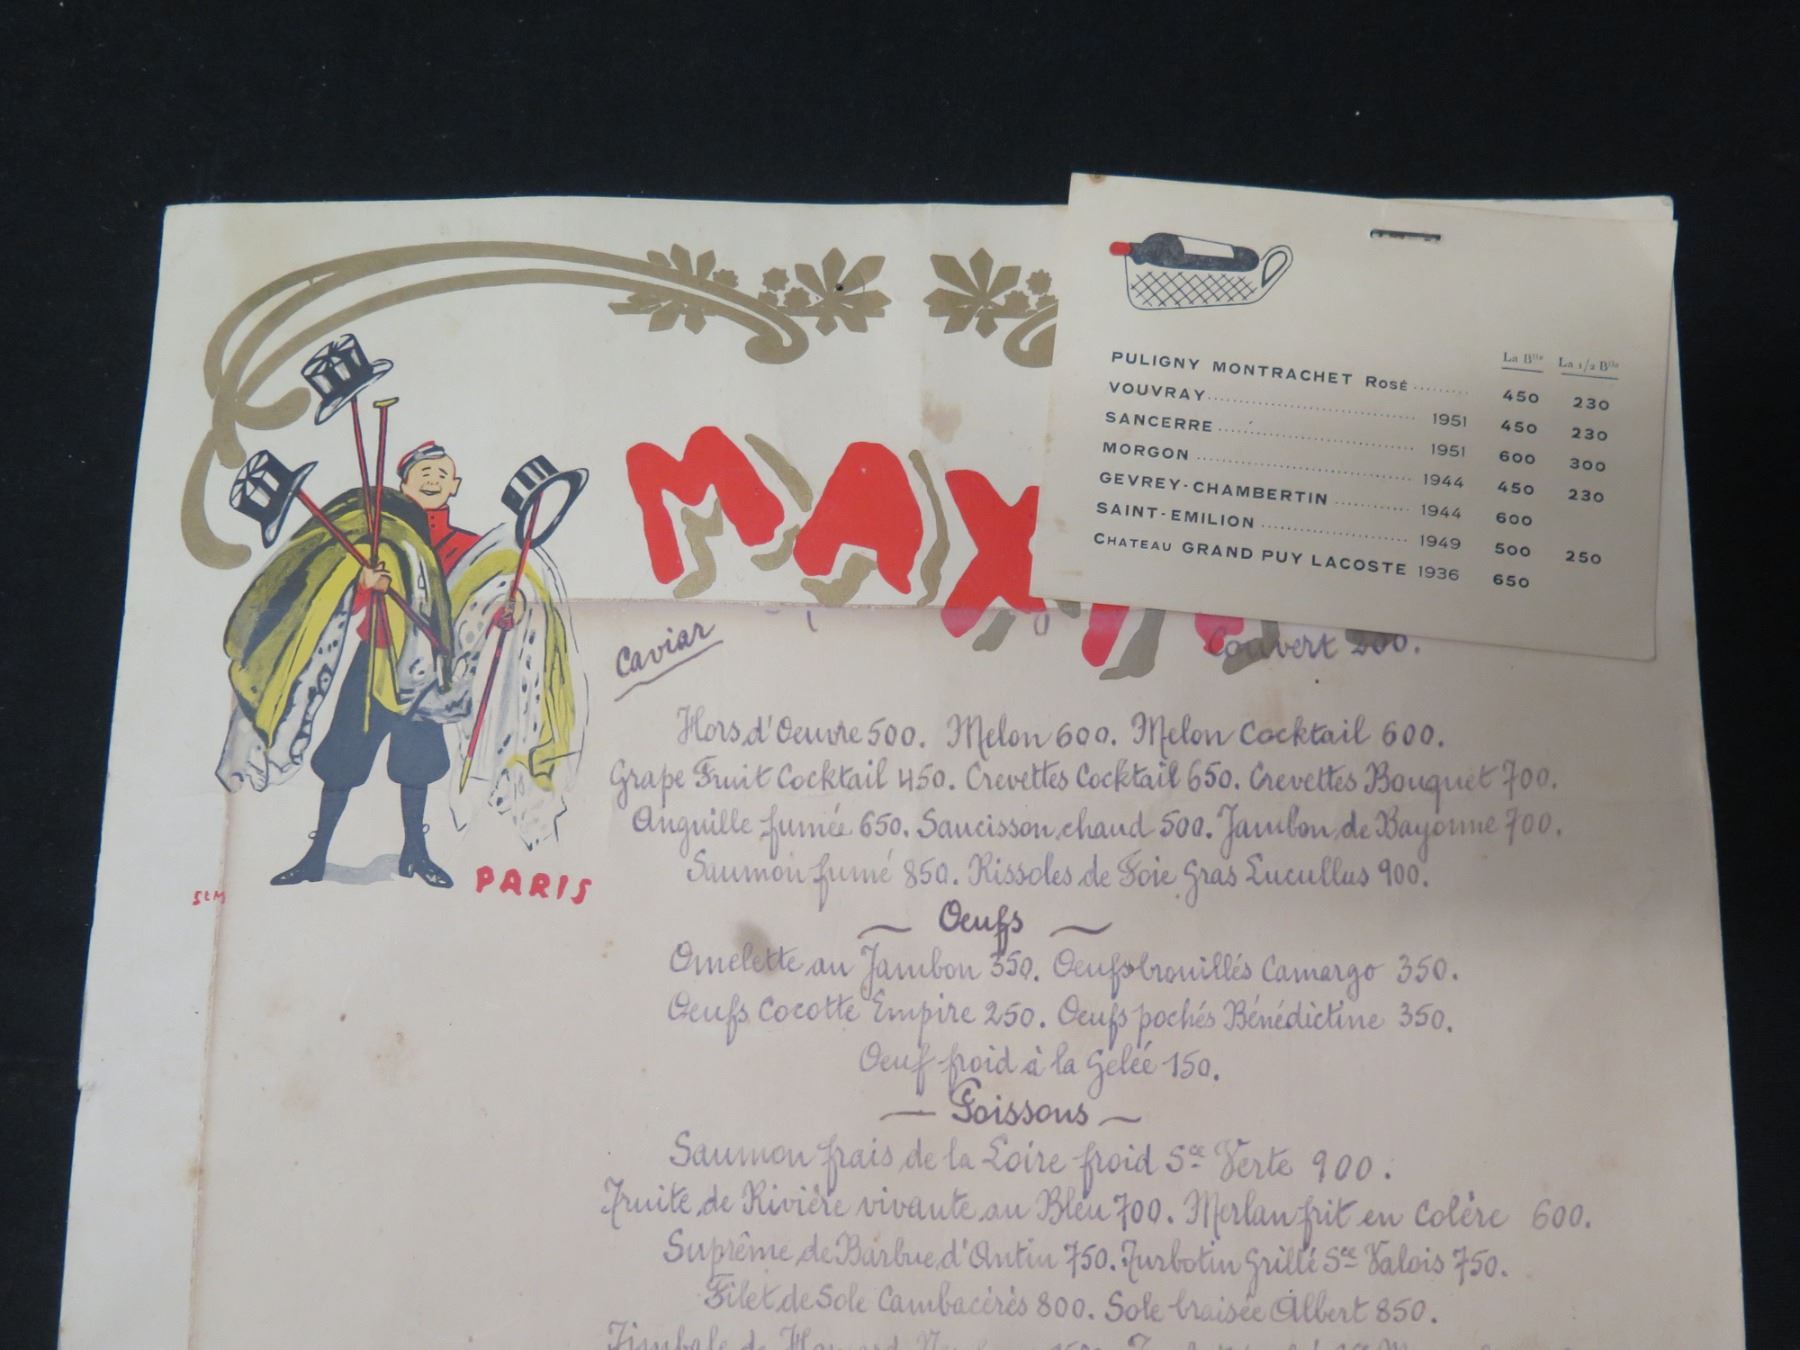 MAXI
La Blle La 1/2 Blle
PULIGNY MONTRACHET Rosé ........ 450 230
VOUVRAY........ 1951 450 230
SANCERRE ........ 1951 600 300
MORGON ........ 1944 450 230
GEVREY-CHAMBERTIN ........ 1944 600
SAINT-EMILION ........ 1949 500 250
CHATEAU GRAND PUY LACOSTE 1936 650
Caviar
Couvert 200.
Hors d'Oeuvre 500. Melon 600. Melon Cocktail 600.
Grape Fruit Cocktail 450. Crevettes Cocktail 650. Crevettes Bouquet 700.
Anguille fumée 650. Saucisson chaud 500. Jambon de Bayonne 700.
Saumon fumé 850. Rissoles de Foie Gras Lucullus 900.
PARIS
SEM
— Oeufs —
Omelette au Jambon 350. Oeufs brouillés Camargo 350.
Oeufs Cocotte Empire 250. Oeufs pochés Bénédictine 350.
Oeuf froid à la Gelée 150.
— Poissons —
Saumon frais de la Loire froid Sce Verte 900.
Truite de Rivière vivante au Bleu 700. Merlan frit en Colère 600.
Suprême de Barbue d'Antin 750. Turbotin Grillé Sce Valois 750.
Filet de Sole Cambacérès 800. Sole braisée Albert 850.
Timbale de Homard